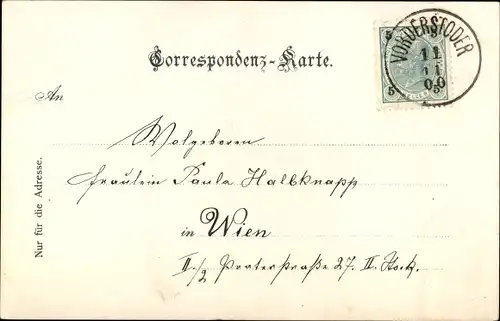 Correspondenz-Karte.
5 5
VORDERSTODER
11
11
00
5 5
An
Wolgeboren
Fräulein Paula Halbknapp
in Wien
II./2 Praterstraße 27. II. Stock.
Nur für die Adresse.